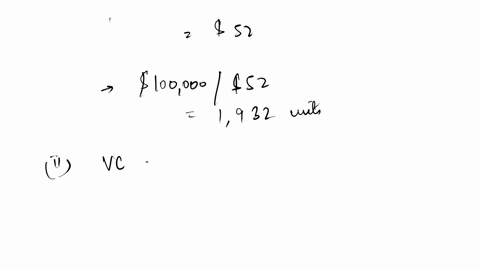 = $52
→ $100,000 / $52
= 1,932 units
(ii) VC -